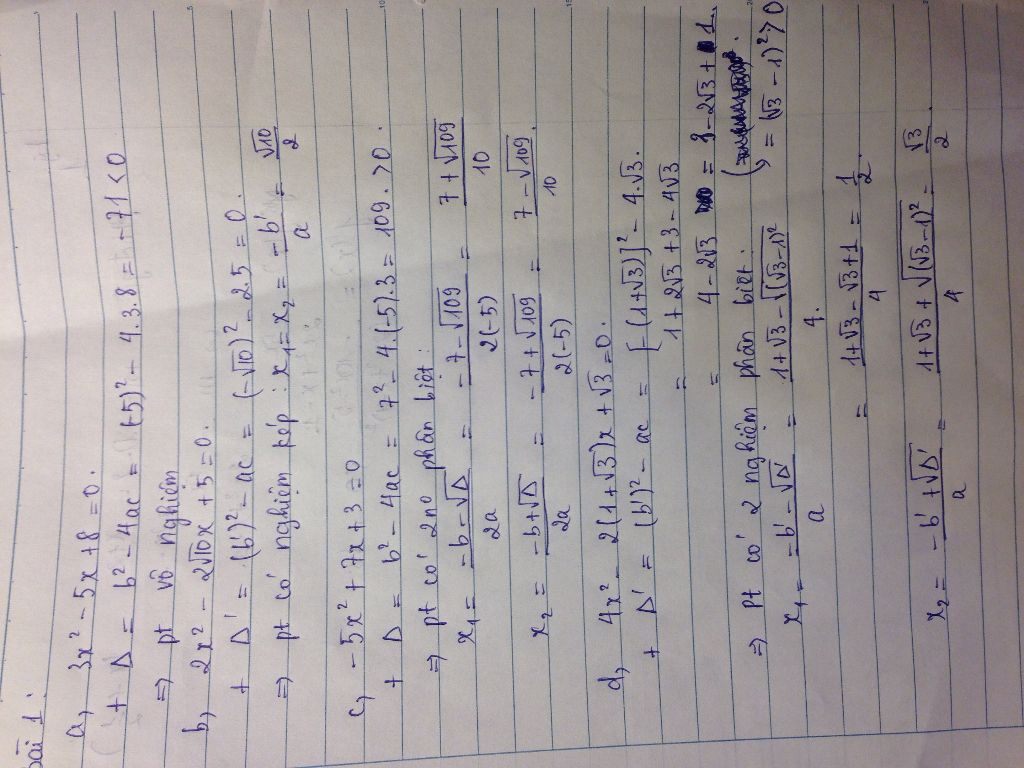 bài 1:
a, 3x² - 5x + 8 = 0.
+ Δ = b² - 4ac = (-5)² - 4.3.8 = -71 < 0
=> pt vô nghiệm
b, 2x² - 2√10x + 5 = 0.
+ Δ' = (b')² - ac = (-√10)² - 2.5 = 0.
=> pt có nghiệm kép : x₁ = x₂ = -b'/a = √10/2
c, -5x² + 7x + 3 = 0
+ Δ = b² - 4ac = 7² - 4.(-5).3 = 109. > 0.
=> pt có 2n⁰ phân biệt:
x₁ = (-b - √Δ)/2a = (-7 - √109)/2(-5) = (7 + √109)/10
x₂ = (-b + √Δ)/2a = (-7 + √109)/2(-5) = (7 - √109)/10.
d, 4x² - 2(1+√3)x + √3 = 0.
+ Δ' = (b')² - ac = [-(1+√3)]² - 4.√3.
= 1 + 2√3 + 3 - 4√3
= 4 - 2√3 = 3 - 2√3 + 1.
=> pt có 2 nghiệm phân biệt. = (√3 - 1)² > 0
x₁ = (-b' - √Δ')/a = (1+√3 - √(√3-1)²)/4.
= (1+√3 - √3 + 1)/4 = 1/2.
x₂ = (-b' + √Δ')/a = (1+√3 + √(√3-1)²)/4 = √3/2.